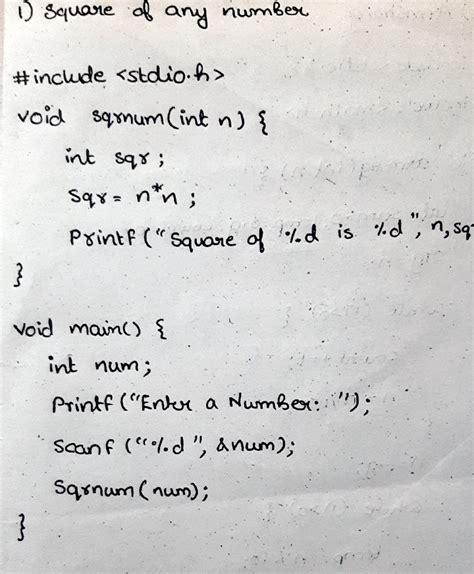 1) Square of any number
#include <stdio.h>
void sqrnum(int n) {
int sqr;
Sqr = n*n;
Printf ("Square of %d is %d", n, sq
}
void main() {
int num;
Printf ("Enter a Number: ");
Scanf ("%d", &num);
Sqrnum (num);
}